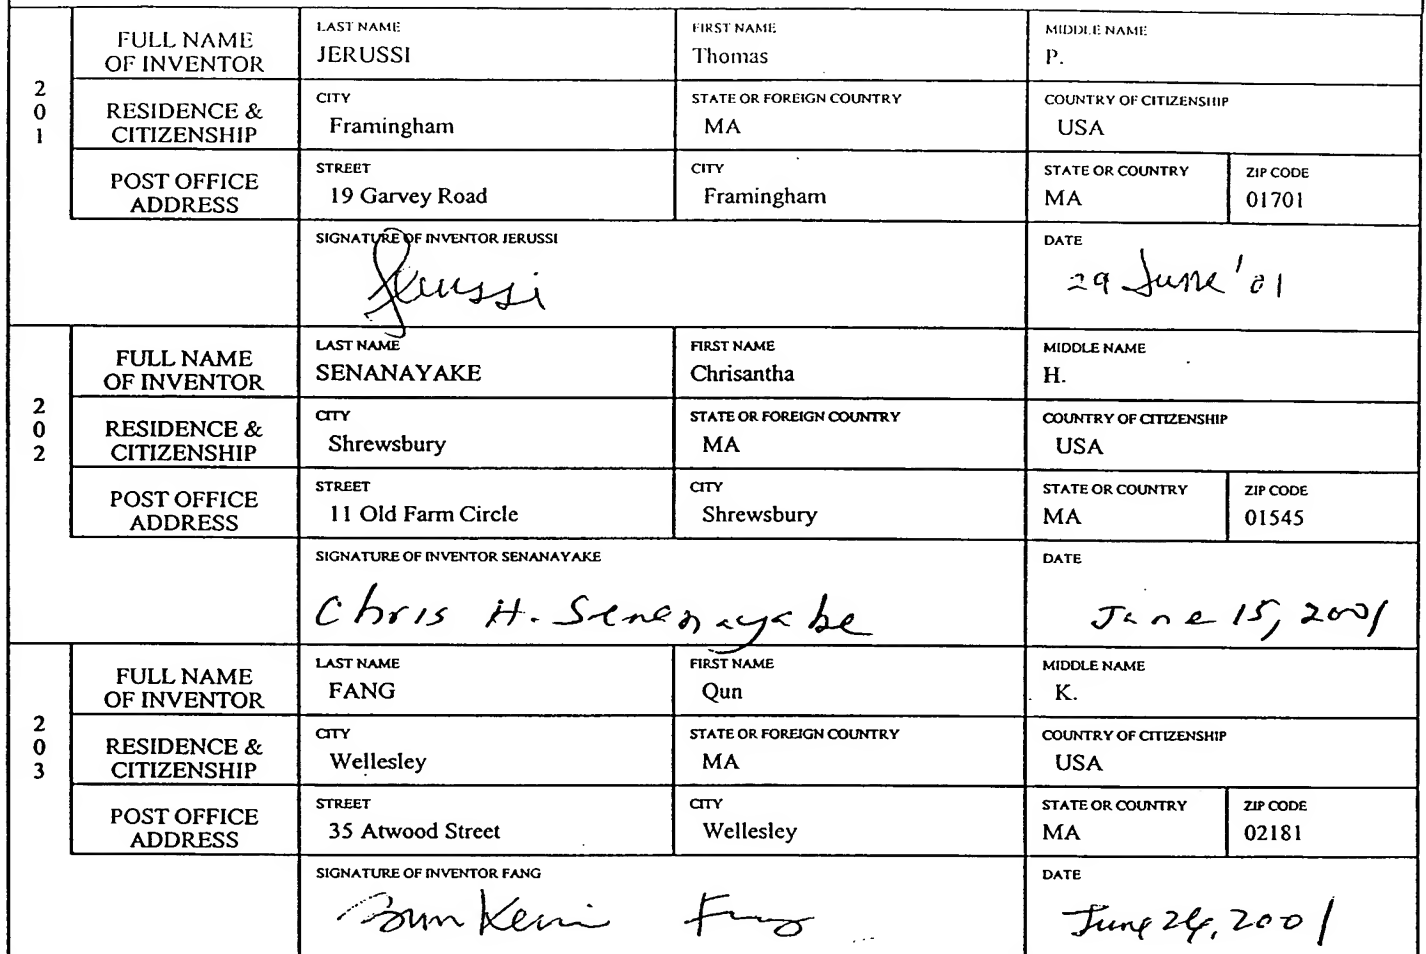 201
FULL NAME OF INVENTOR
LAST NAME
JERUSSI
FIRST NAME
Thomas
MIDDLE NAME
P.
RESIDENCE & CITIZENSHIP
CITY
Framingham
STATE OR FOREIGN COUNTRY
MA
COUNTRY OF CITIZENSHIP
USA
POST OFFICE ADDRESS
STREET
19 Garvey Road
CITY
Framingham
STATE OR COUNTRY
MA
ZIP CODE
01701
SIGNATURE OF INVENTOR JERUSSI
Jerussi
DATE
29 June '01
202
FULL NAME OF INVENTOR
LAST NAME
SENANAYAKE
FIRST NAME
Chrisantha
MIDDLE NAME
H.
RESIDENCE & CITIZENSHIP
CITY
Shrewsbury
STATE OR FOREIGN COUNTRY
MA
COUNTRY OF CITIZENSHIP
USA
POST OFFICE ADDRESS
STREET
11 Old Farm Circle
CITY
Shrewsbury
STATE OR COUNTRY
MA
ZIP CODE
01545
SIGNATURE OF INVENTOR SENANAYAKE
Chris H. Senanayake
DATE
June 15, 2001
203
FULL NAME OF INVENTOR
LAST NAME
FANG
FIRST NAME
Qun
MIDDLE NAME
K.
RESIDENCE & CITIZENSHIP
CITY
Wellesley
STATE OR FOREIGN COUNTRY
MA
COUNTRY OF CITIZENSHIP
USA
POST OFFICE ADDRESS
STREET
35 Atwood Street
CITY
Wellesley
STATE OR COUNTRY
MA
ZIP CODE
02181
SIGNATURE OF INVENTOR FANG
Kevin Fang
DATE
June , 2001